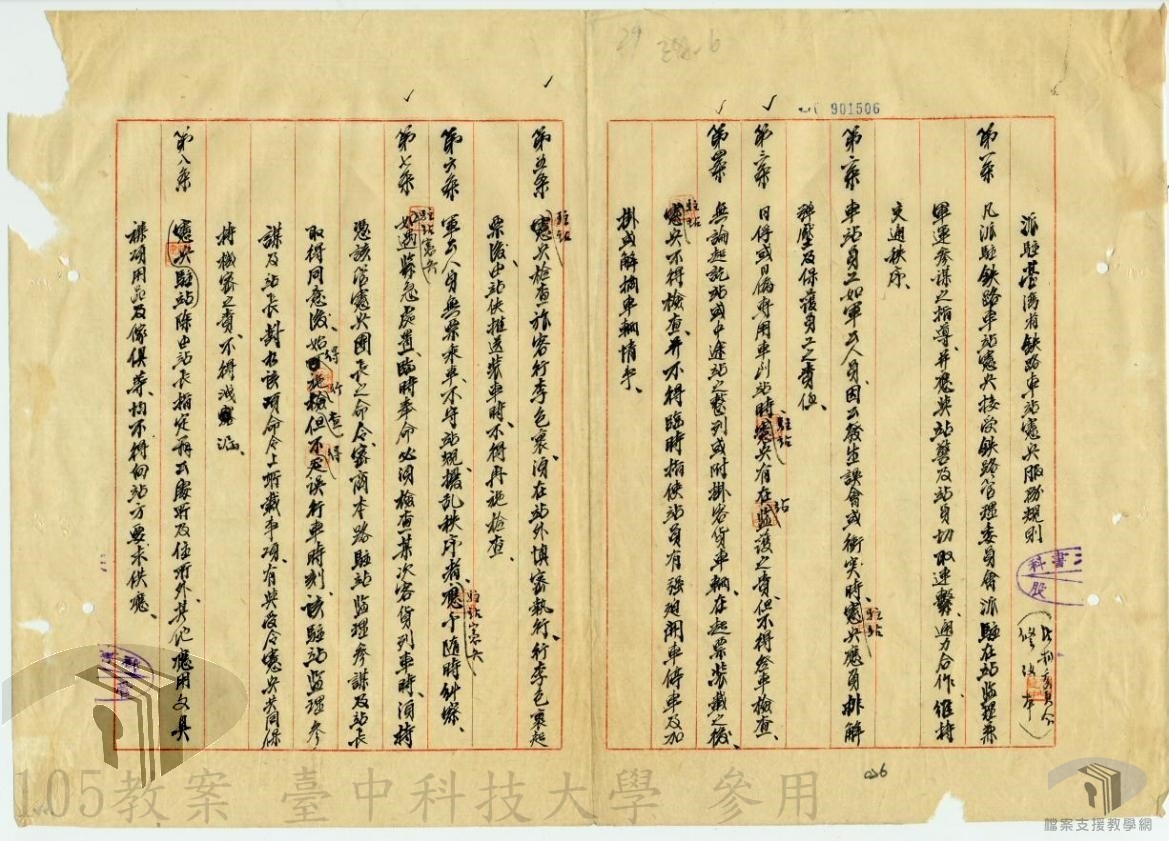 901506
派駐臺灣省鐵路車站憲兵服務規則
修改本
第一条 凡派駐鉄路車站憲兵接受鉄路管理委員會派駐在站監理參
軍運參謀之指導、并應與站警及站員切取連繫、通力合作、維持
交通秩序、
第二条 車站員工如軍公人員、因公發生誤會或衝突時、駐站憲兵應負排解
彈壓及保護員工之責任、
第三条 日僑專用車到站時、駐站憲兵有在站監護之責、但不得登車檢查、
第四条 無論起訖站或中途站之整列或附掛客貨車輛、在起票裝載之後、
駐站憲兵不得檢查、并不得臨時指使站員有强迫開車停車及加
掛或解摘車輛情事、
第五条 駐站憲兵檢查旅客行李包裹、須在站外慎審執行、行李包裹起
票後、由站伕推送裝車時、不得再施檢查、
第六条 軍公人員無票乘車、不守站規、擾乱秩序者、駐站憲兵應予隨時糾察、
第七条 駐站憲兵如遇緊急處置、臨時奉命必須檢查某次客貨列車時、須持
憑該管憲兵團長之命令、密商本路駐站監理參謀及站長
取得同意後、始得施行檢查、但不得延誤行車時刻、該駐站監理參
謀及站長對於該項命令上所載事項、有與受令憲兵共同保
持機密之責、不得洩漏、
第八条 憲兵駐站除由站長指定辦公處所及住所外、其他應用文具
雜項用品及傢俱等、均不得向站方要求供應、
105教案 臺中科技大學 參用
檔案支援教學網